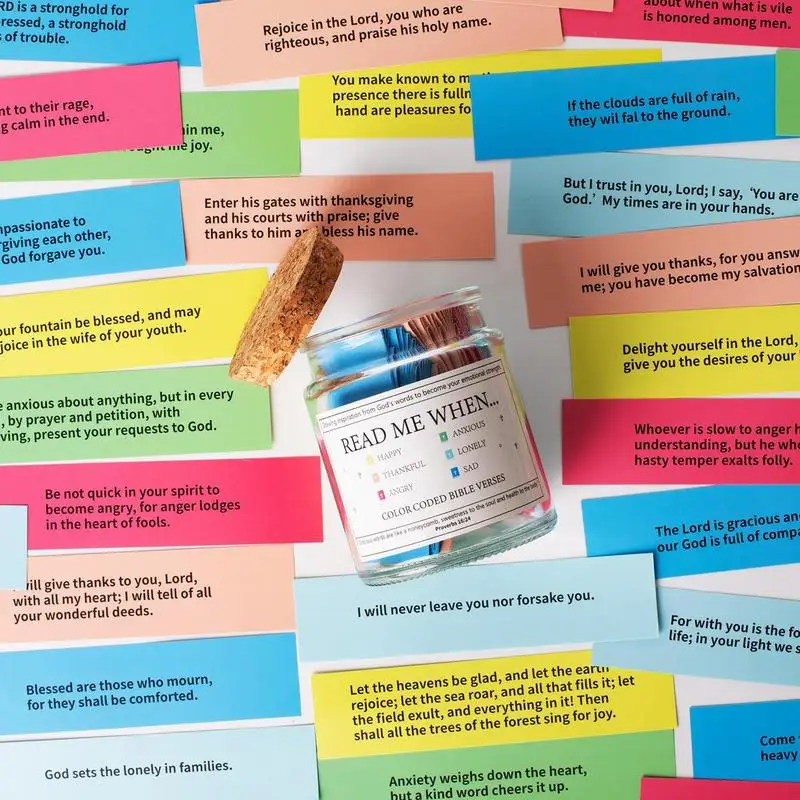 RD is a stronghold for
pressed, a stronghold
s of trouble.
Rejoice in the Lord, you who are
righteous, and praise his holy name.
about when what is vile
is honored among men.
nt to their rage,
g calm in the end.
You make known to m
presence there is fulln
hand are pleasures fo
If the clouds are full of rain,
they wil fal to the ground.
in me,
ught me joy.
But I trust in you, Lord; I say, ‘You are
God.’ My times are in your hands.
Enter his gates with thanksgiving
and his courts with praise; give
thanks to him and bless his name.
mpassionate to
rgiving each other,
God forgave you.
I will give you thanks, for you answ
me; you have become my salvation
our fountain be blessed, and may
joice in the wife of your youth.
Delight yourself in the Lord,
give you the desires of your
e anxious about anything, but in every
, by prayer and petition, with
ving, present your requests to God.
Drawing inspiration from God's words to become your emotional strength
READ ME WHEN...
HAPPY
THANKFUL
ANGRY
ANXIOUS
LONELY
SAD
COLOR CODED BIBLE VERSES
Gracious words are like a honeycomb, sweetness to the soul and health to the body
Proverbs 16:24
Whoever is slow to anger h
understanding, but he who
hasty temper exalts folly.
Be not quick in your spirit to
become angry, for anger lodges
in the heart of fools.
The Lord is gracious an
our God is full of compa
will give thanks to you, Lord,
with all my heart; I will tell of all
your wonderful deeds.
I will never leave you nor forsake you.
For with you is the fo
life; in your light we s
Blessed are those who mourn,
for they shall be comforted.
Let the heavens be glad, and let the earth
rejoice; let the sea roar, and all that fills it; let
the field exult, and everything in it! Then
shall all the trees of the forest sing for joy.
Come
heavy
God sets the lonely in families.
Anxiety weighs down the heart,
but a kind word cheers it up.